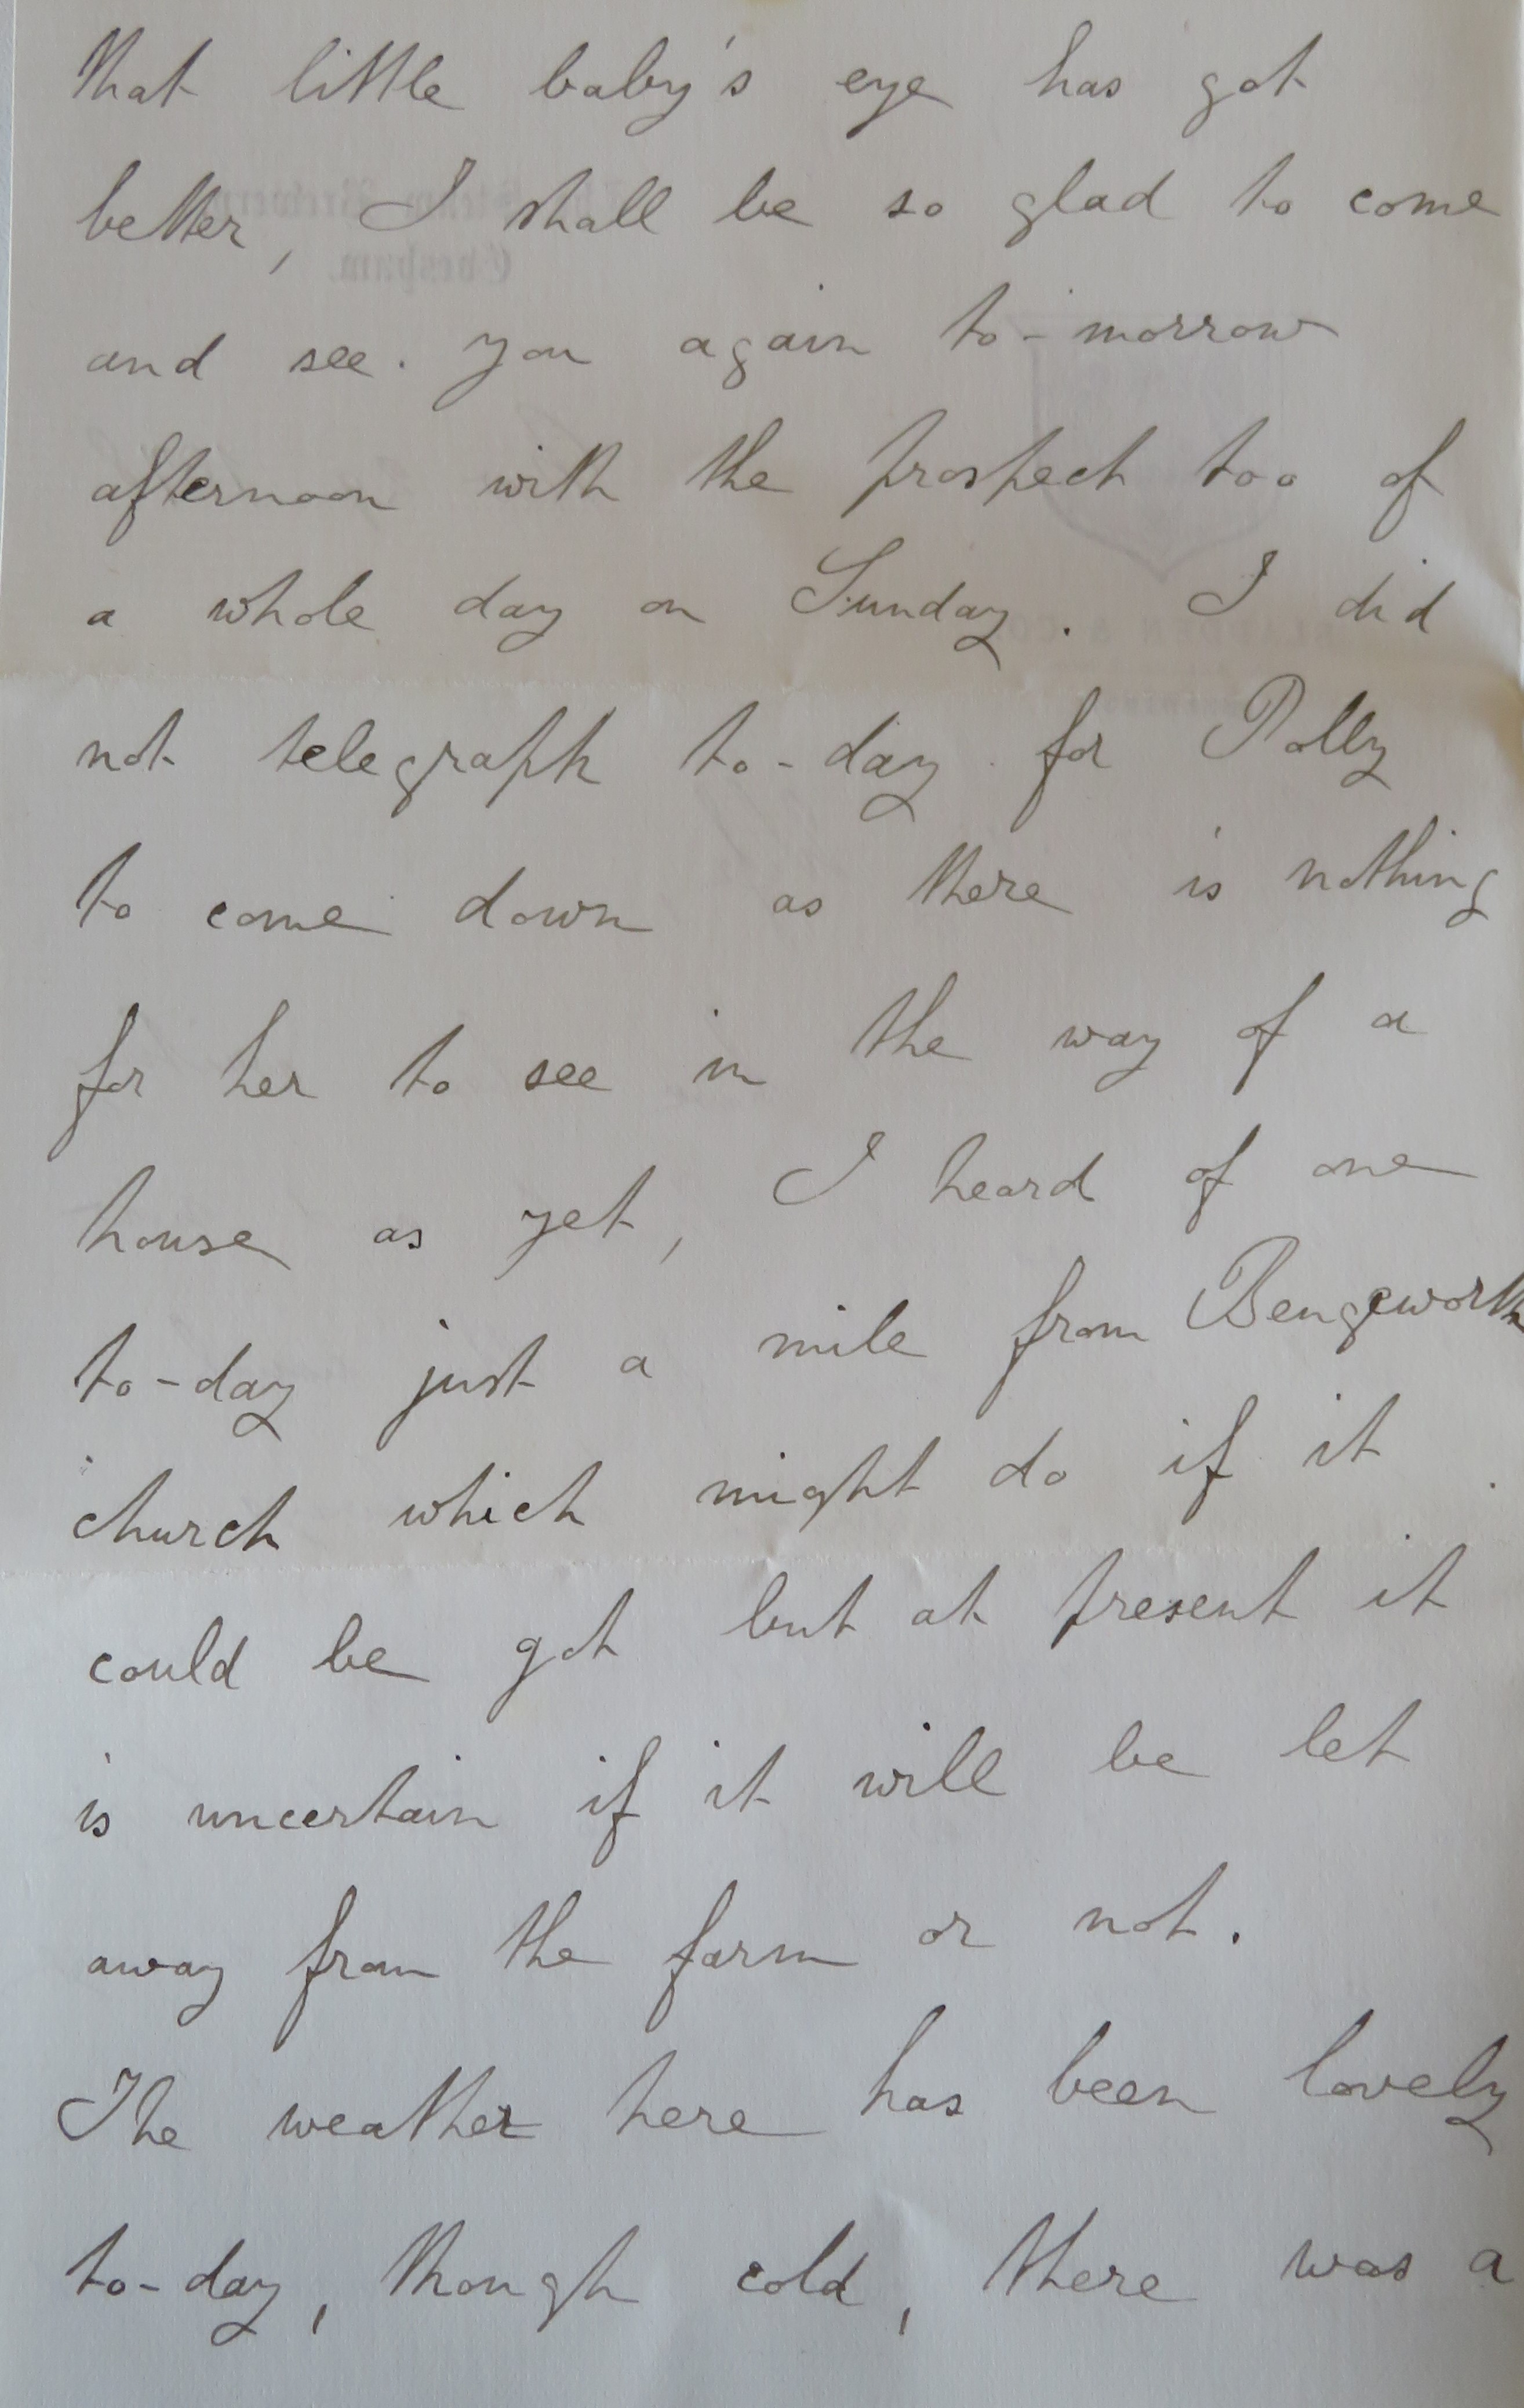 that little baby's eye has got
better, I shall be so glad to come
and see you again to-morrow
afternoon with the prospect too of
a whole day on Sunday. I did
not telegraph to-day for Polly
to come down as there is nothing
for her to see in the way of a
house as yet, I heard of one
to-day just a mile from Bengeworth
church which might do if it
could be got but at present it
is uncertain if it will be let
away from the farm or not.
The weather here has been lovely
to-day, though cold, there was a